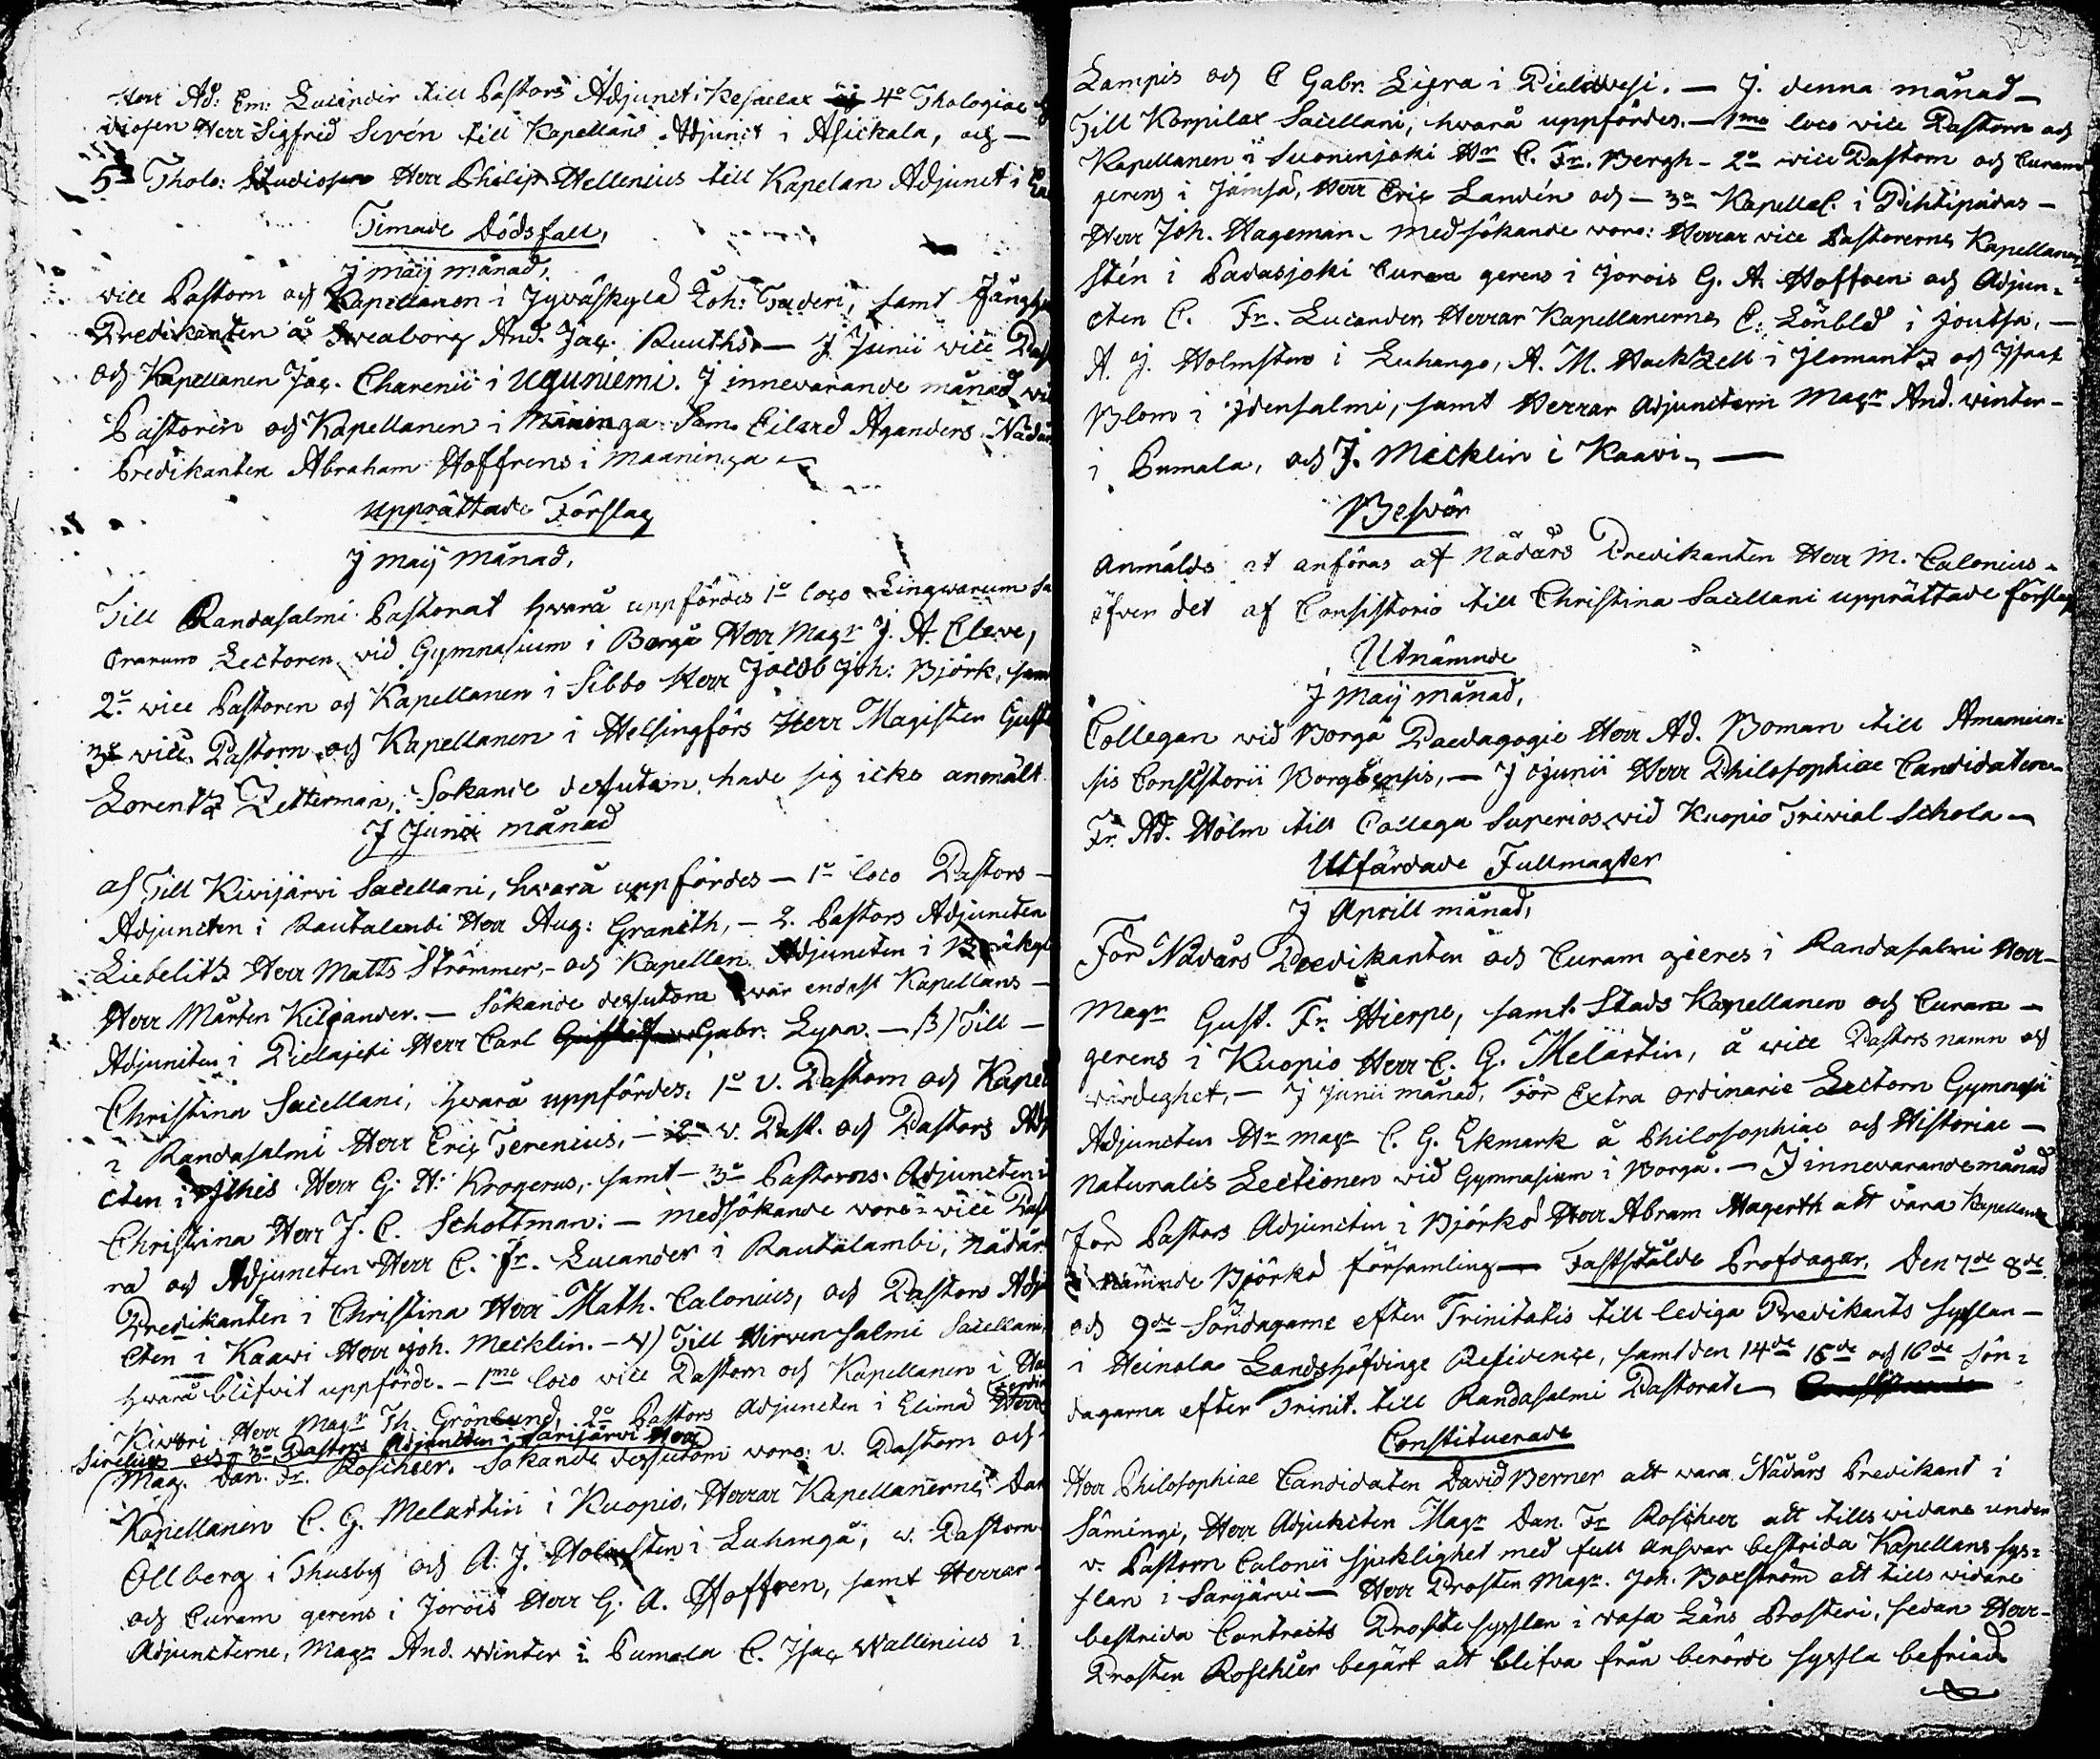 Herr Ad: Em: Lucander till Pastors Adjunct i Kesälax 4o Thologiae
diosen Herr Sigfrid Sirén till Kapellans Adjunct i Asickala, och —
5o Tholo: Studiosen Herr Philip Hellenius till Kapelan Adjunct i
Timade Dödsfall,
J Maij månad,
vice Pastorn och Kapellanen i Jyväskylä Joh: Tuderi, samt
Predikanten å Sveaborg And. Jac. Ruuths. — J Junii vice Past
och Kapellanen Jac. Charenii i Uguniemi. J innevarande månad vi
Pastorin och Kapellanen i Maaninga Sam. Eilard Aganders Nådår
Predikanten Abraham Hoffrens i Maaninga —
upprättade Förslag
J Maij månad,
Till Randasalmi Pastorat hwarå uppfördes 1o loco Lingwarum Sa
crarum Lectoren vid Gymnasium i Borgå Herr Magr J. A. Cleve,
2o vice Pastoren och Kapellanen i Sibbo Herr Jacob Joh: Björk, sam
3o vice Pastorn och Kapellanen i Helsingfors Herr Magisten Gust
Lorentz Zetterman, Sökande desutan hade sig icke anmält
J Junii månad
a) Till Kivijärvi Sacellani, hwarå uppfördes — 1o loco Pastors —
Adjuncten i Rautalambi Herr Aug: Granith, — 2. Pastors Adjuncten
Liebelitz Herr Matts Strömmer, — och Kapellan Adjuncten i Bräkyl
Herr Mårten Kiljander. — Sökande desutom war endast Kapellans —
Adjuncten i Pielajesi Herr Carl Gabr. Lyra. — β) Till —
Christina Sacellani, hwarå uppfördes. 1o v. Pastorn och Kapell
i Randasalmi Herr Eric Terenius, — 2o v. Past. och Pastors Adj
cten i Ithis Herr G. H: Krogerus, samt — 3o Pastorns Adjuncten i
Christina Herr J. C. Schottman: — medsökande voro: vice Past
ra och Adjuncten Herr C. Fr. Lucander i Rautalambi, Nådår
Predikanten i Christina Herr Math. Calonius, och Pastors Adj
cten i Kaawi Herr Joh. Mecklin. — γ) Till Hirvensalmi Sacellani
hwarå blifvit uppförde. — 1mo loco vice Pastorn och Kapellanen i
Kiwori Herr Magr Th. Grönlund, 2o Pastors Adjuncten i Elimä Herr
Sirelius och — 3o Pastors Adjuncten i Sarijärvi Herr
Mag. Dan. Fr. Roschier. Sökande desutom voro: v. Pastorn och
Kapellanen C. G. Melartin i Kuopio, Herrar Kapellanerne, Dan
Ollberg i Thusby och A. J. Holmsten i Luhanga, v. Pastorn
och Curam gerens i Jorois Herr G. A. Hoffren, samt Herrar
Adjuncterne, Magr And. Winter i Pumala C. Isac Wallenius i
Lampis och C Gabr. Ligra i Pielavesi. — J. denna månad —
Till Korpilax Sacellani, hwarå uppfördes, — 1mo loco vice Pastorn och
Kapellanen i Suonenjoki Hr C. Fr. Bergh — 2o vice Pastorn och Curam
gerens i Jämsä, Herr Eric Landén och — 3o Kapella i Pihtipudas —
Herr Joh. Hageman. Medsökande voro: Herrar vice Pastorerne Kapellanen
Stén i Padasjoki Curam gerens i Jorois G. A. Hoffren och Adjun-
cten C. Fr. Lucander, Herrar Kapellanerne C: Lönbld i Joutsa, —
A. J. Holmsten i Luhango, A. M. Hackzell i Ilomantz och Isaac
Blom i Idensalmi, samt Herrar Adjunctern Magr And. Winter —
i Pumala, och J. Mecklin i Kaavi, —
Beswär
Anmälds at anföras af Nådårs Predikanten Herr M. Calonius —
öfver det af Consistorio till Christina Sacellani upprättade förslag
Utnämnde
J Maij månad,
Collegan wid Borgå Paedagogie Herr Ad. Boman till Amanuen-
sis Consistorii Borgoensis, — J Junii Herr Philosophiae Candidaten —
Fr. Ad. Holm till Collega Superior wid Kuopio Trivial Schola —
Utfärdade Fullmagter
J Aprill månad,
För Nådårs Predikanten och Curam gerens i Randasalmi Herr —
Magr Gust. Fr. Hierpe, samt Stads Kapellanen och Curam —
gerens i Kuopio Herr C. G. Melartin, å vice Pastors namn och
wärdeghet, — J Junii månad, För Extra ordinarie Lectorn Gymnasii
Adjuncten Hr Magr C. G. Ekmark å Philosophiae och Historiae —
Naturalis Lectionen vid Gymnasium i Borgå. — J innevarande månad
För Pastors Adjuncten i Björkö Herr Abram Hagerth att vara Kapellan
i nämnde Björkö församling — Fastställde Profdagar, Den 7de 8de
och 9de Söndagarne efter Trinitatis till lediga Predikants sysslan —
i Heinola Landshöfdinge Residence, samt den 14de 15de och 16de Sön-
dagarna efter Trinit. till Randasalmi Pastorat —
Constituerade
Herr Philosophiae Candidaten David Berner att wara Nådårs Predikant i
Sämingi, Herr Adjuncten Magr Dan. Fr Roschier att tills widare under
v. Pastorn Calonii sjuklighet med full answar bestrida Kapellans sys-
slan i Sarijärvi — Herr Prosten Magr. Joh. Boxström att tills vidare
bestrida Contracts Prostesysslan i Vasa Läns Prosteri, sedan Herr —
Prosten Roschier begärt att blifva från berörde syssla befriad